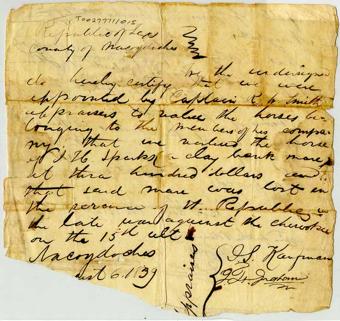 T00277711015
Republic of Texas
County of Nacogdoches
We the undersigned
do hereby certify that we were
appointed by Captain R W Smith
appraisers to value the horses be
longing to the members of his compa
ny that we valued the horse
of J H Sparks a clay bank mare
at three hundred dollars and
that said mare was lost in
the service of the Republic in
the late war against the cherokee
on the 15th ult
Nacogdoches
ust 6. 1839
D. S. Kaufman
Ingham
ppraisers